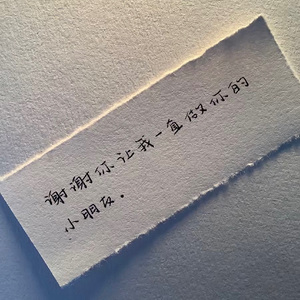 谢谢你让我一直做你的
小朋友.